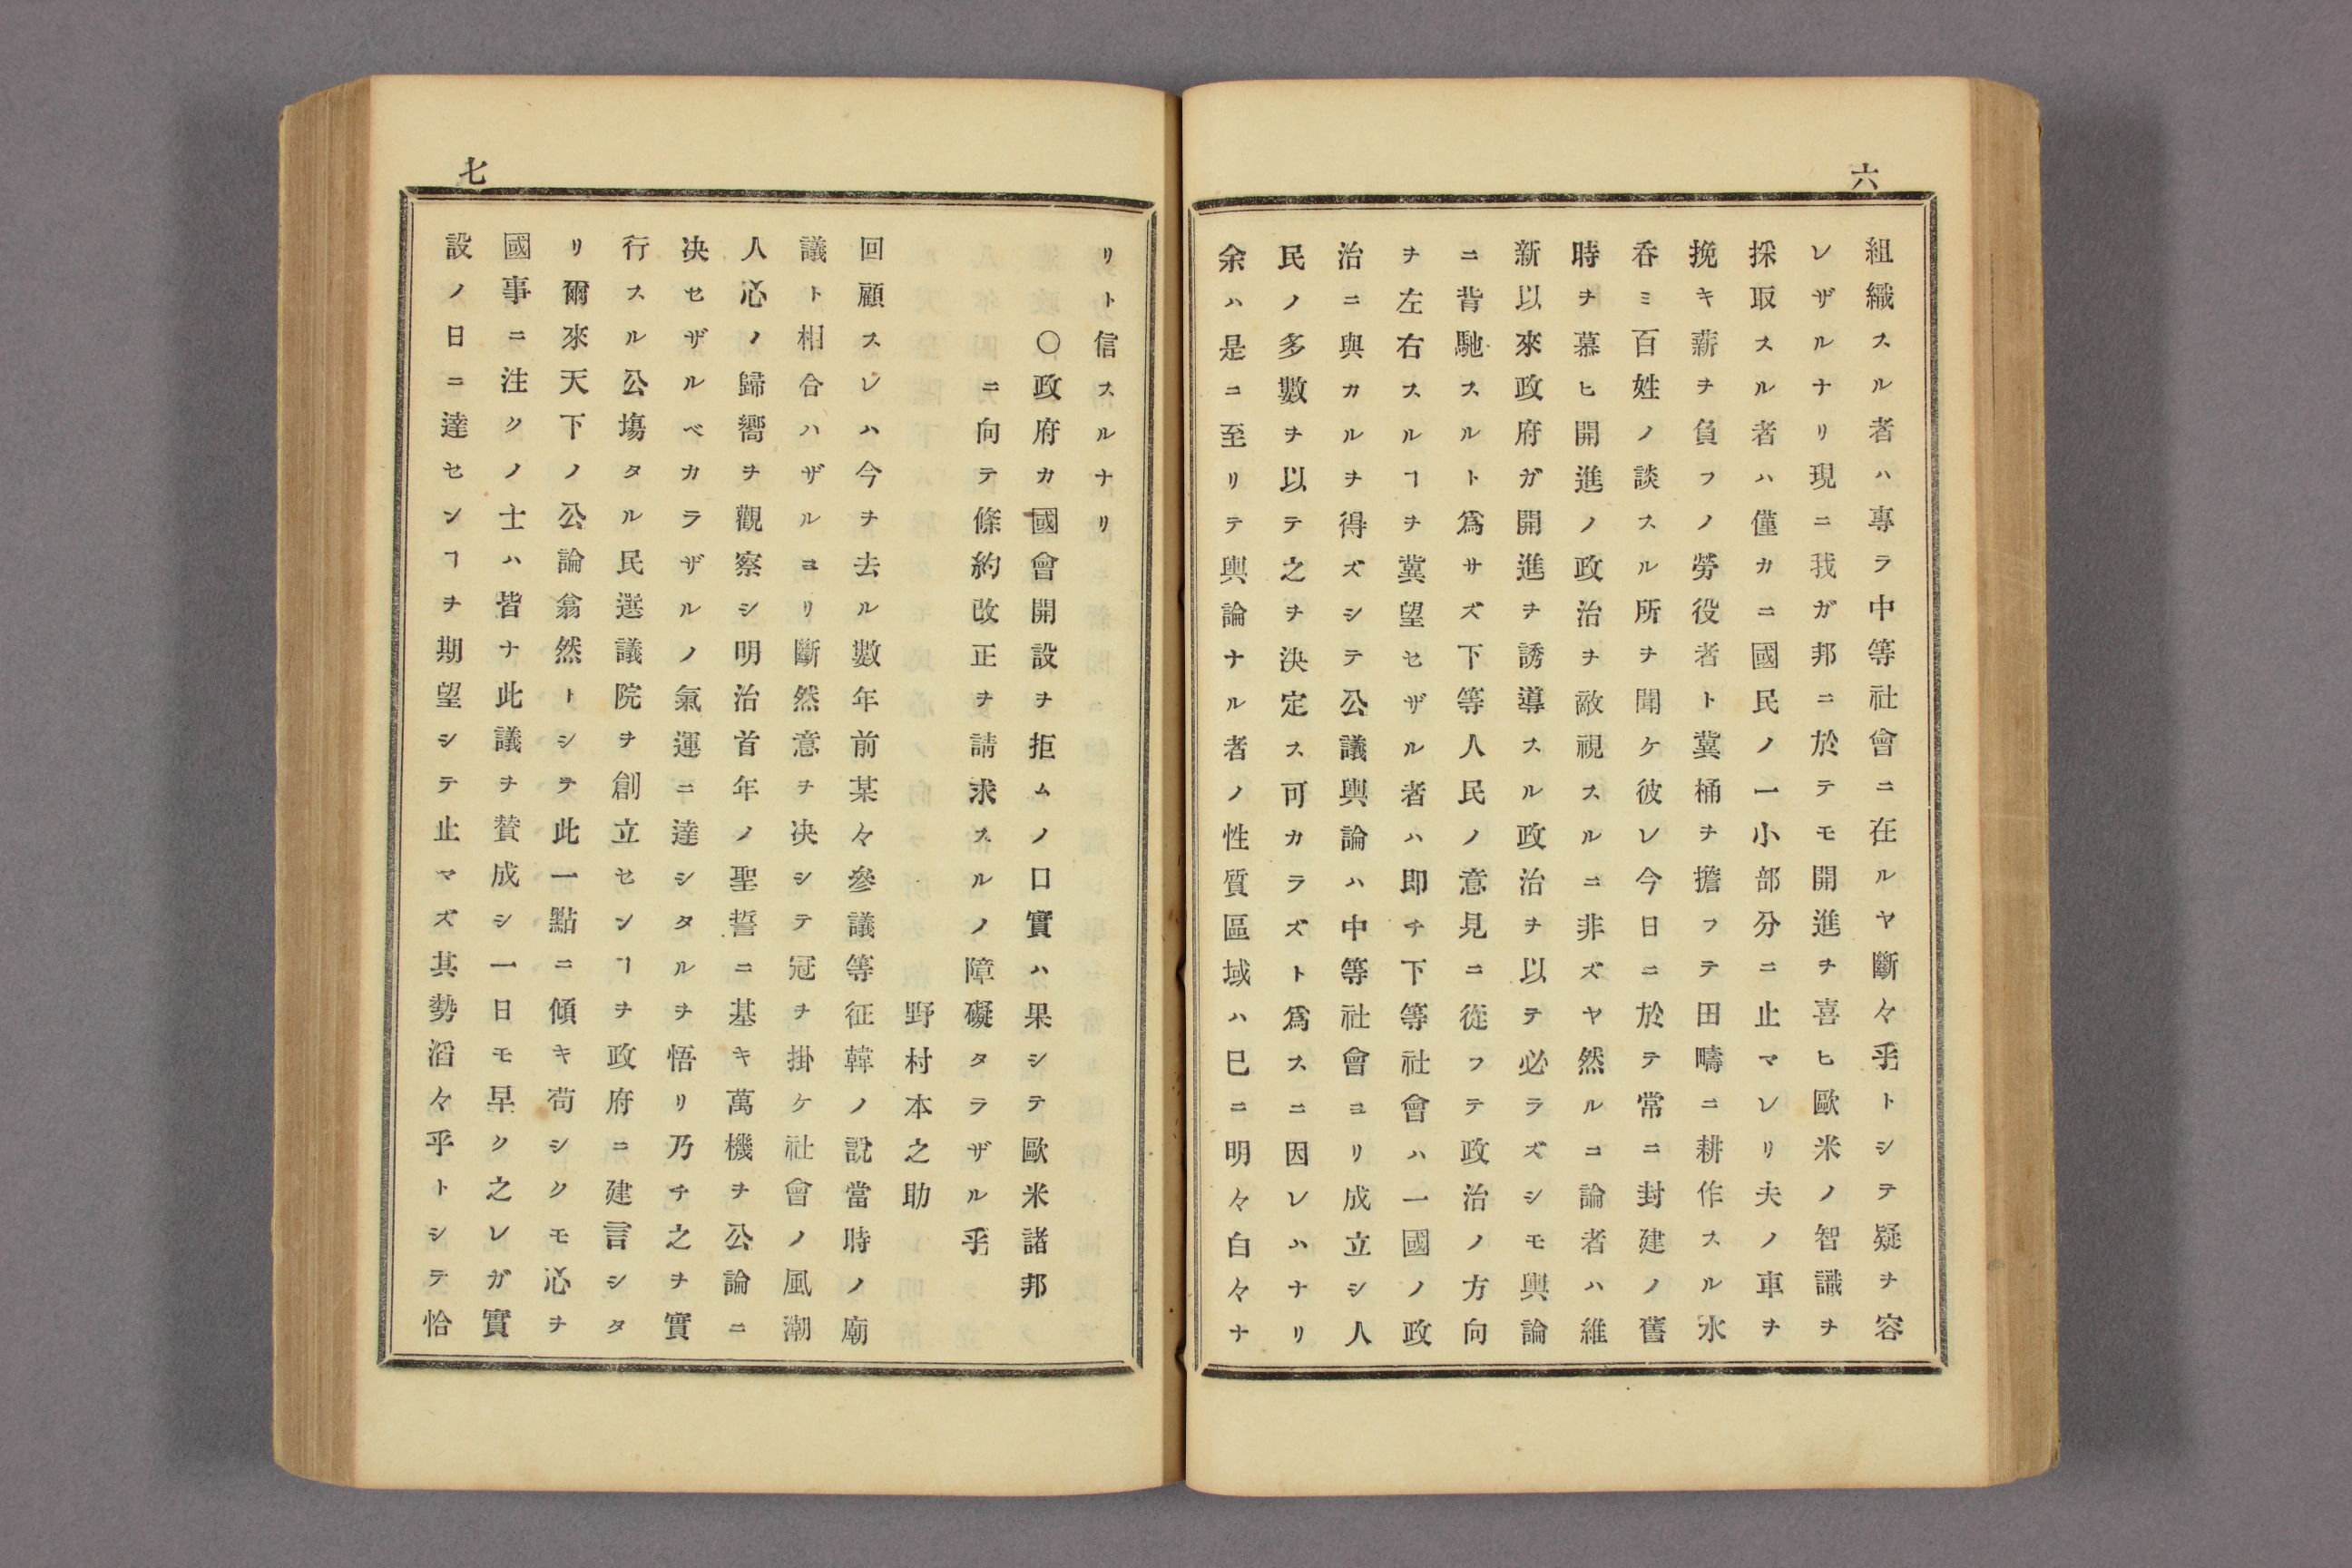 六
組織スル者ハ專ラ中等社會ニ在ルヤ斷々乎トシテ疑ヲ容
レザルナリ現ニ我ガ邦ニ於テモ開進ヲ喜ヒ歐米ノ智識ヲ
採取スル者ハ僅カニ國民ノ一小部分ニ止マレリ夫ノ車ヲ
挽キ薪ヲ負フノ勞役者ト糞桶ヲ擔フテ田疇ニ耕作スル水
呑ミ百姓ノ談スル所ヲ聞ケ彼レ今日ニ於テ常ニ封建ノ舊
時ヲ慕ヒ開進ノ政治ヲ敵視スルニ非ズヤ然ルコ論者ハ維
新以來政府ガ開進ヲ誘導スル政治ヲ以テ必ラズシモ輿論
ニ背馳スルト爲サズ下等人民ノ意見ニ從フテ政治ノ方向
ヲ左右スルヿヲ冀望セザル者ハ即チ下等社會ハ一國ノ政
治ニ與カルヲ得ズシテ公議輿論ハ中等社會ヨリ成立シ人
民ノ多數ヲ以テ之ヲ決定ス可カラズト爲スニ因レハナリ
余ハ是ニ至リテ輿論ナル者ノ性質區域ハ已ニ明々白々ナ
七
リト信スルナリ
〇政府カ國會開設ヲ拒ムノ口實ハ果シテ歐米諸邦
ニ向テ條約改正ヲ請求スルノ障礙タラザル乎
野村本之助
回顧スレハ今ヲ去ル數年前某々參議等征韓ノ說當時ノ廟
議ト相合ハザルヨリ斷然意ヲ决シテ冠ヲ掛ケ社會ノ風潮
人心ノ歸嚮ヲ觀察シ明治首年ノ聖誓ニ基キ萬機ヲ公論ニ
决セザルベカラザルノ氣運ニ達シタルヲ悟リ乃チ之ヲ實
行スル公塲タル民選議院ヲ創立センヿヲ政府ニ建言シタ
リ爾來天下ノ公論翕然トシテ此一點ニ傾キ苟シクモ心ヲ
國事ニ注クノ士ハ皆ナ此議ヲ賛成シ一日モ早ク之レガ實
設ノ日ニ達センヿヲ期望シテ止マズ其勢滔々乎トシテ恰